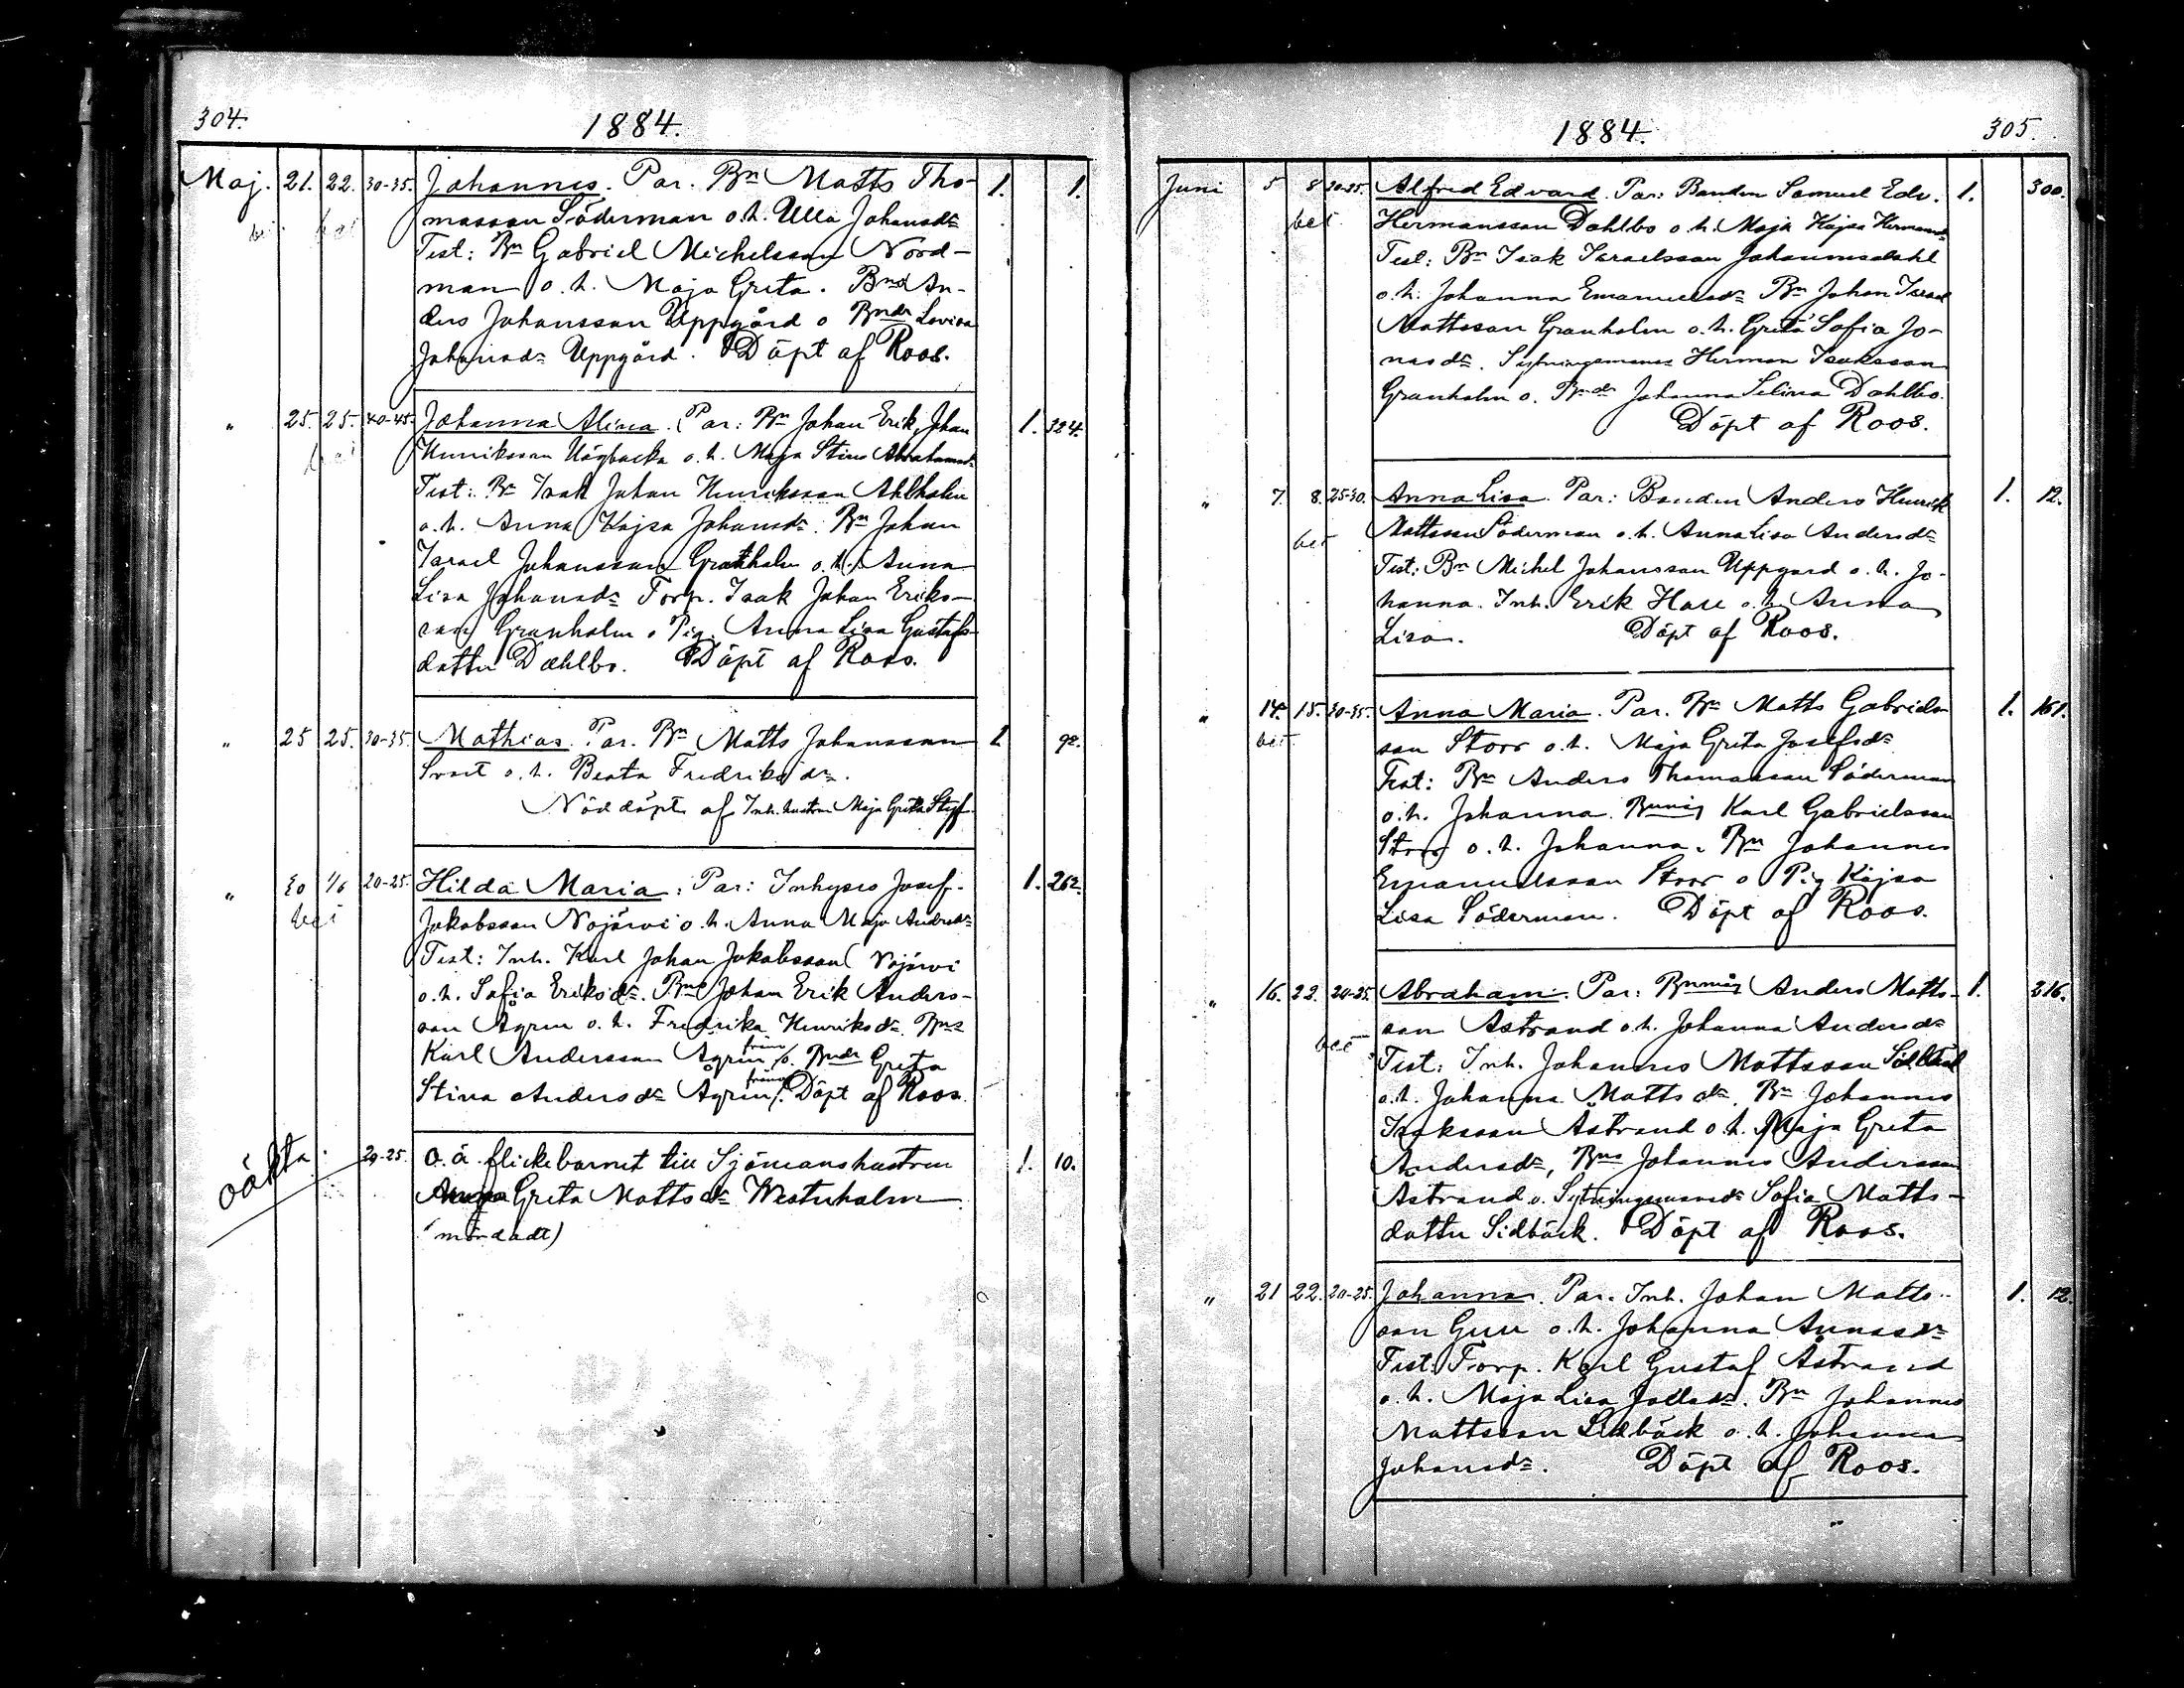 304.
1884.
Maj. 21. 22. 30-35. Johannes. Par. Bn Matts Tho- 1. 1.
massson Söderman o.h. Ulla Johansdr
Test: Bn Gabriel Michelsson Nord-
man o.h. Maja Greta. Bnd An-
ders Johansson Uppgård o Bndr Lovisa
Johansdr Uppgård. Döpt af Roos.
" 25. 25. 40-45. Johanna Alina. Par: Bn Johan Erik Johan 1. 324.
Henriksson Högbacka o.h. Maja Stina Abrahamsdr
Test: Bn Isak Johan Henriksson Ahlholm
o.h. Anna Kajsa Johansdr. Bn Johan
Israel Johansson Granholm o.h. Anna
Lisa Johansdr Torp. Isak Johan Eriks-
son Granholm o Pig. Anna Lisa Gustafs-
dotter Dahlbo. Döpt af Roos.
" 25 25. 30-35. Mathias. Par. Bn Matts Johansson 1. 92.
Svart o.h. Beata Fredriksdr.
Nöddöpt af Inh. hustrun Maja Greta Styf.
" 30 1/6 20-25. Hilda Maria. Par: Inhyses Josef 1. 262.
bet
Jakobsson Nojärvi o.h. Anna Maja Andersdr
Test: Inh. Karl Johan Jakobsson Nojärvi
o.h. Sofia Eriksdr. Bns Johan Erik Anders-
son Agren o.h. Fredrika Henriksdr. Bns
Karl Andersson Agren o. Bndr Greta
Stina Andersdr Ågren. Döpt af Roos.
oäkta. 24-25. O.ä. flickebarnet till Sjömanshustrun 1. 10.
Maja Greta Mattsdr Westerholm
(mördadt)
1884.
305.
Juni 5 8 30-35. Alfred Edvard. Par: Bonden Samuel Edv. 1. 300.
bet
Hermansson Dahlbo o.h. Maja Kajsa Hermansdr
Test: Bn Isak Israelsson Johannesdahl
o.h. Johanna Emanuelsdr Bn Johan Israel
Mattsson Granholm o.h. Greta Sofia Jo-
nasdr. Sytningsmannen Herman Isaksson
Granholm o. Bndr Johanna Selina Dahlbo.
Döpt af Roos.
" 7. 8. 25-30. Anna Lisa. Par: Bonden Anders Henrik 1. 12.
bet
Mattsson Söderman o.h. Anna Lisa Andersdr
Test: Bn Michel Johansson Uppgård o.h. Jo-
hanna. Inh. Erik Hare o.h. Anna
Lisa. Döpt af Roos.
" 14. 15. 30-35. Anna Maria. Par. Bn Matts Gabriels- 1. 161.
bet
son Storr o.h. Maja Greta Josefsdr
Test: Bn Anders Thomasson Söderman
o.h. Johanna. Bnmåg Karl Gabrielsson
Storr o.h. Johanna. Bn Johannes
Emanuelsson Storr o Pig Kajsa
Lisa Söderman. Döpt af Roos.
" 16. 22. 24-25. Abraham. Par: Bnmåg Anders Matts- 1. 216.
bet
son Åstrand o.h. Johanna Andersdr
Test: Inh. Johannes Mattsson
o.h. Johanna Mattsdr, Bn Johannes
Isaksson Åstrand o.h. Maja Greta
Andersdr, Bns Johannes Andersson
Åstrand o. Sytningsmansdr Sofia Matts-
dotter Sidbäck. Döpt af Roos.
" 21 22. 20-25. Johanna. Par. Inh. Johan Matts- 1. 12.
son o.h. Johanna
Test: Torp. Karl Gustaf Åstrand
o.h. Maja Lisa. Bn Johannes
Mattsson Sidbäck o.h. Johanna
Johansdr. Döpt af Roos.